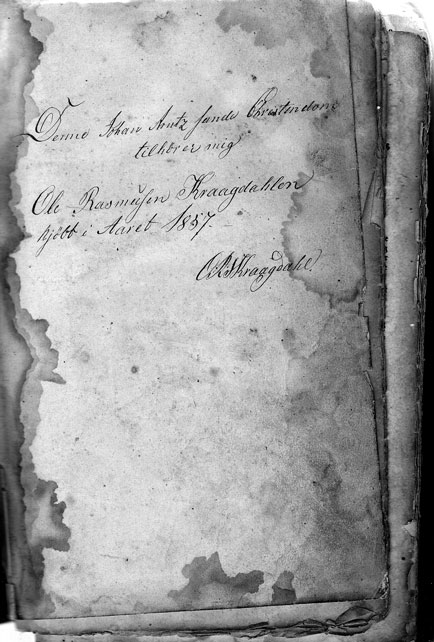 Denne Johan Arntz sande Christendom
tilhører mig
Ole Rasmusen Kraagdahlen
kjöbt i Aaret 1857.
ORKraagdahl.